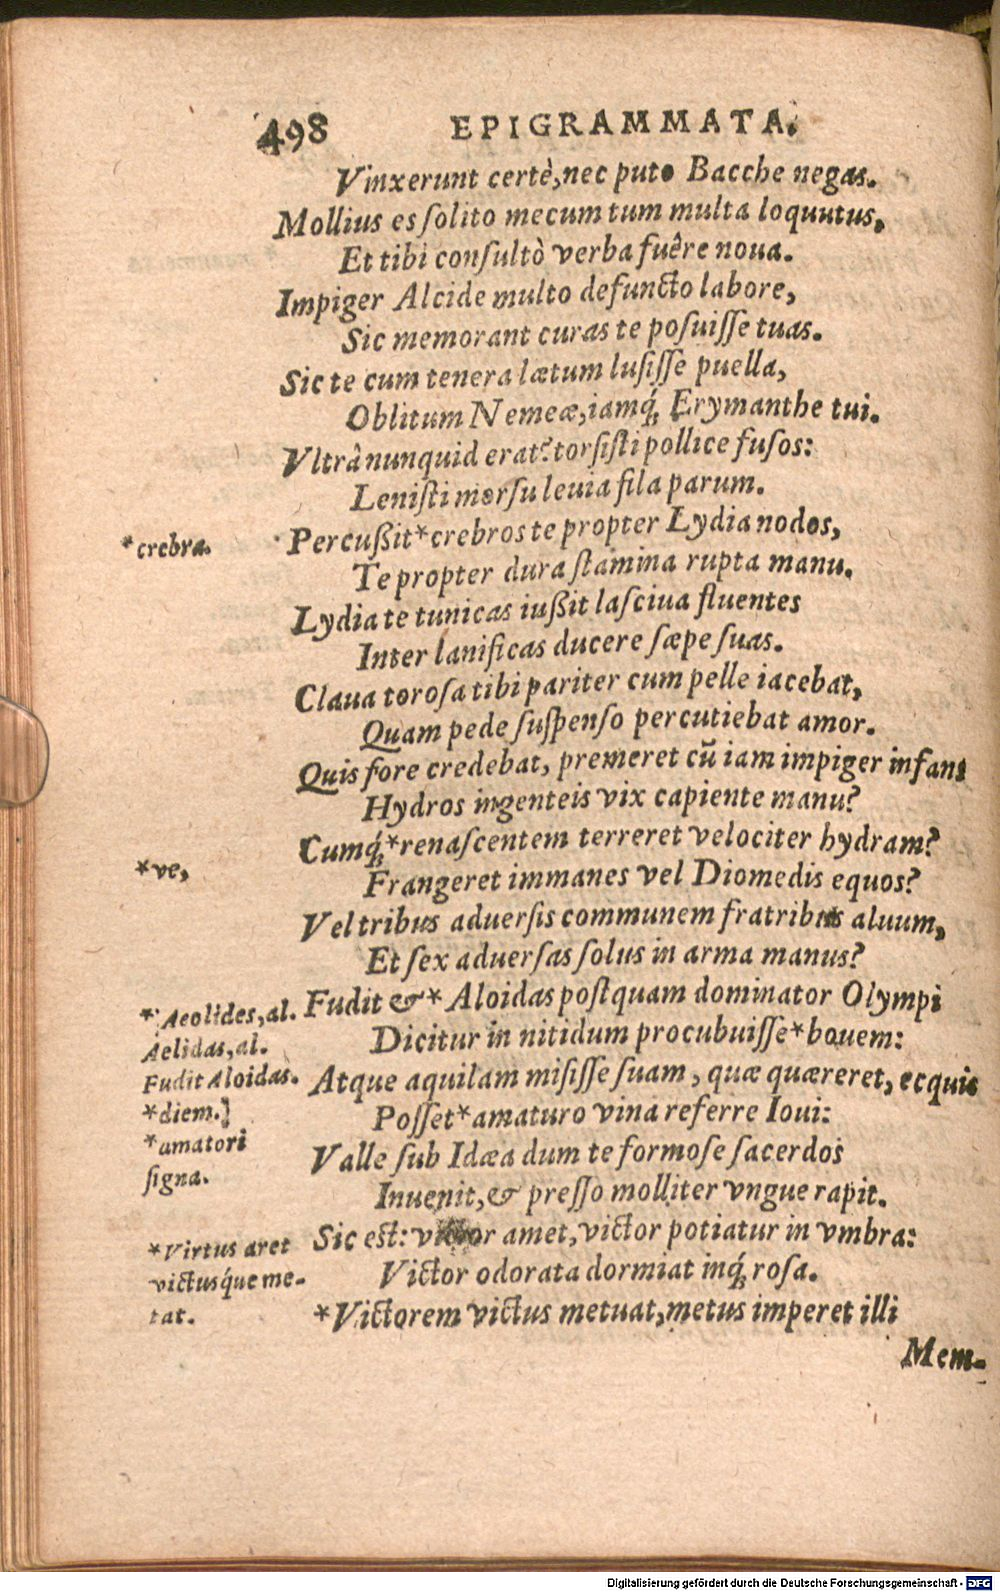 498 EPIGRAMMATA.
Vinxerunt certè, nec puto Bacche negas.
Mollius es ſolito mecum tum multa loquutus,
Et tibi conſultò verba fuêre noua.
Impiger Alcide multo defuncto labore,
Sic memorant curas te poſuiſſe tuas.
Sic te cum tenera lætum luſiſſe puella,
Oblitum Nemeæ, iamq́; Erymanthe tui.
Vltrà nunquid erat? torſiſti pollice fuſos:
Leniſti morſu leuia fila parum.
*crebra. Percußit *crebros te propter Lydia nodos,
Te propter dura ſtamina rupta manu.
Lydia te tunicas iußit laſciua fluentes
Inter lanificas ducere ſæpe ſuas.
Claua toroſa tibi pariter cum pelle iacebat,
Quam pede ſuſpenſo percutiebat amor.
Quis fore credebat, premeret cũ iam impiger infans
Hydros ingenteis vix capiente manu?
Cumq́; *renaſcentem terreret velociter hydram?
*ve, Frangeret immanes vel Diomedis equos?
Vel tribus aduerſis communem fratribus aluum,
Et ſex aduerſas ſolus in arma manus?
*Aeolides, al. Fudit & * Aloidas poſtquam dominator Olympi
Aelidas, al. Dicitur in nitidum procubuiſſe *bouem:
Fudit Aloidas. Atque aquilam miſiſſe ſuam, quæ quæreret, ecquis
*diem.] Poſſet *amaturo vina referre Ioui:
*amatori Valle ſub Idæa dum te formoſe ſacerdos
ſigna. Inuenit, & preſſo molliter vngue rapit.
*Virtus aret Sic eſt: victor amet, victor potiatur in vmbra:
victusq́ue me- Victor odorata dormiat inq́; roſa.
tat. *Victorem victus metuat, metus imperet illi
Mem-
Digitalisierung gefördert durch die Deutsche Forschungsgemeinschaft - DFG